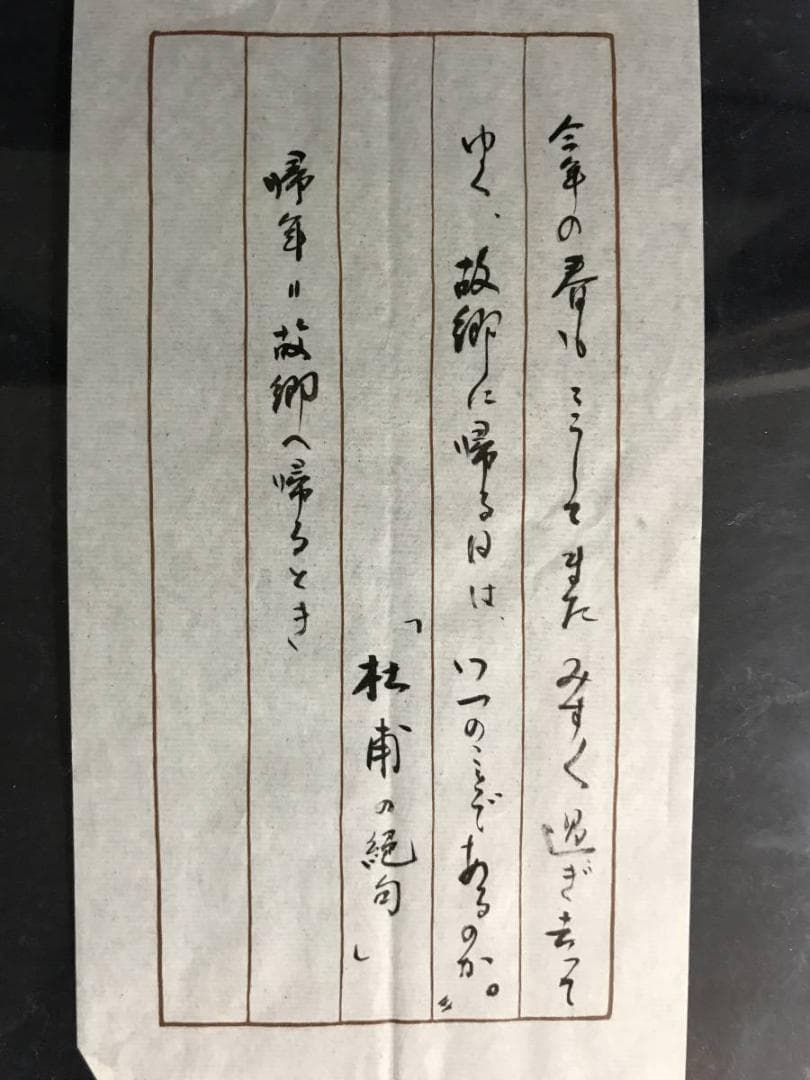 今年の春もこうしてまたみすく過ぎ去って
ゆく、故郷に帰る日は、いつのことであるのか。〟
「杜甫の絶句」
帰年〃故郷へ帰るとき